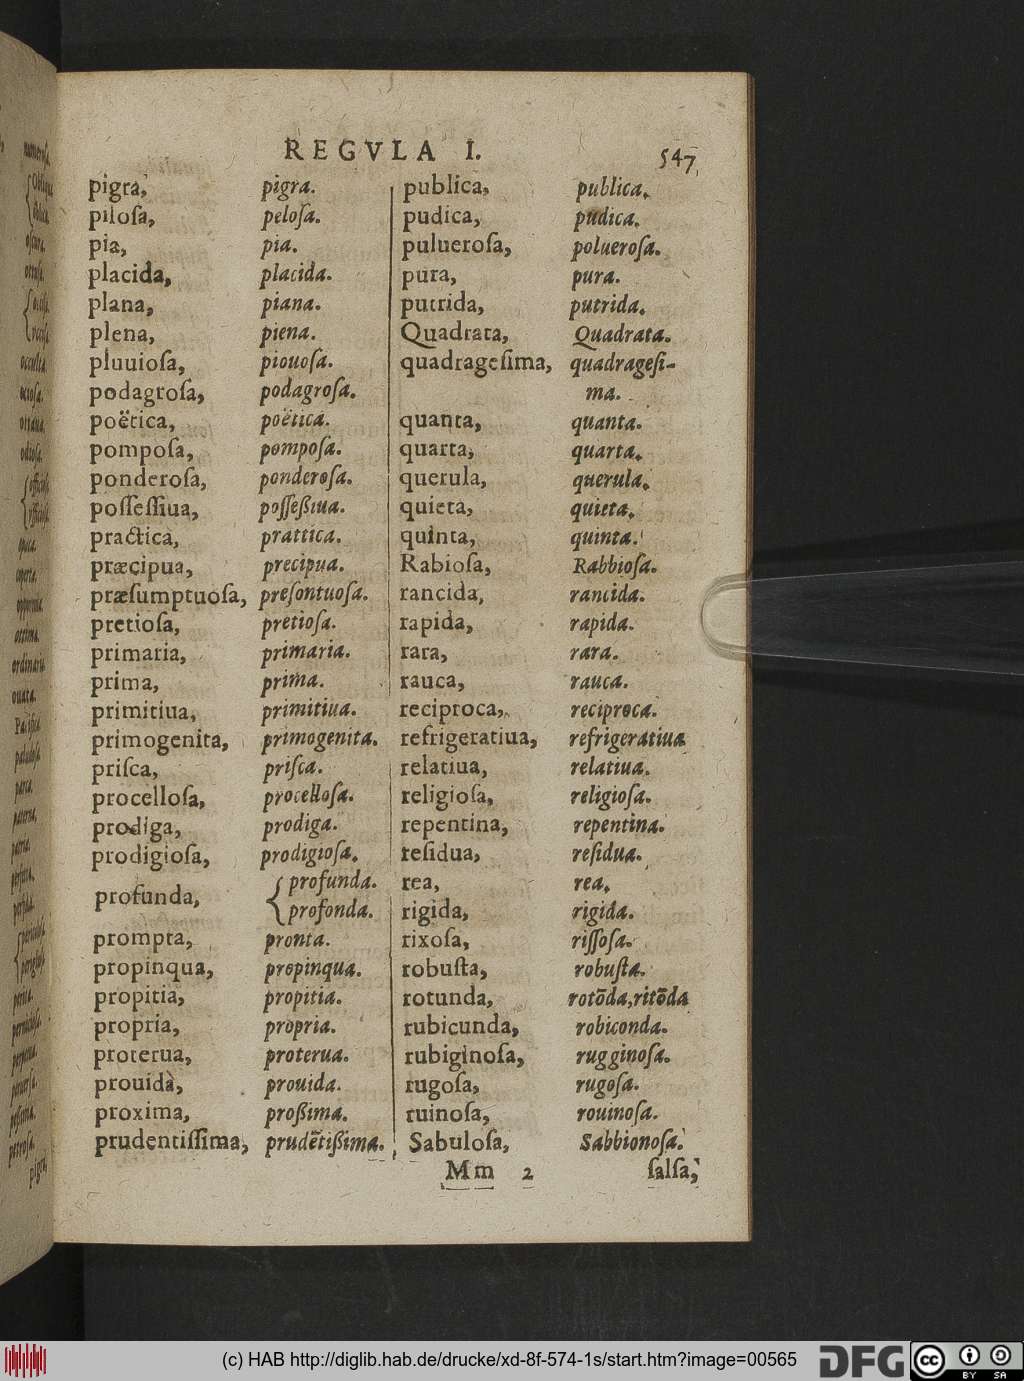 REGVLA I. 547
pigra, pigra.
piloſa, peloſa.
pia, pia.
placida, placida.
plana, piana.
plena, piena.
pluuioſa, piouoſa.
podagroſa, podagroſa.
poëtica, poëtica.
pompoſa, pompoſa.
ponderoſa, ponderoſa.
poſſeſſiua, poſſeßiua.
practica, prattica.
præcipua, precipua.
præſumptuoſa, preſontuoſa.
pretioſa, pretioſa.
primaria, primaria.
prima, prima.
primitiua, primitiua.
primogenita, primogenita.
priſca, priſca.
procelloſa, procelloſa.
prodiga, prodiga.
prodigioſa, prodigioſa.
profunda, {profunda.
profonda.
prompta, pronta.
propinqua, propinqua.
propitia, propitia.
propria, propria.
proterua, proterua.
prouida, prouida.
proxima, proßima.
prudentiſſima, prudẽtißima.
publica, publica.
pudica, pudica.
pulueroſa, polueroſa.
pura, pura.
putrida, putrida.
Quadrata, Quadrata.
quadrageſima, quadrageſi-
ma.
quanta, quanta.
quarta, quarta.
querula, querula.
quieta, quieta.
quinta, quinta.
Rabioſa, Rabbioſa.
rancida, rancida.
rapida, rapida.
rara, rara.
rauca, rauca.
reciproca, reciproca.
refrigeratiua, refrigeratiua
relatiua, relatiua.
religioſa, religioſa.
repentina, repentina.
reſidua, reſidua.
rea, rea.
rigida, rigida.
rixoſa, riſſoſa.
robuſta, robuſta.
rotunda, rotõda,ritõda
rubicunda, robiconda.
rubiginoſa, rugginoſa.
rugoſa, rugoſa.
ruinoſa, rouinoſa.
Sabuloſa, Sabbionoſa.
Mm 2 ſalſa,
(c) HAB http://diglib.hab.de/drucke/xd-8f-574-1s/start.htm?image=00565
DFG cc BY SA